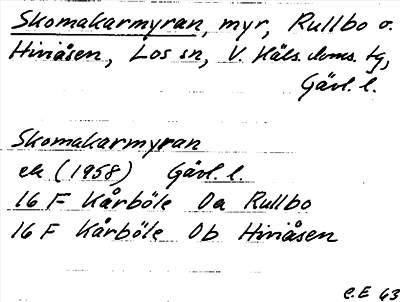 Skomakarmyran, myr, Rullbo o.
Hiviåsen, Los sn, V. Häls. doms. tg,
Gävl. l.
Skomakarmyran
ek (1958) Gävl. l.
16 F Kårböle 0a Rullbo
16 F Kårböle 0b Hiviåsen
C.E 63